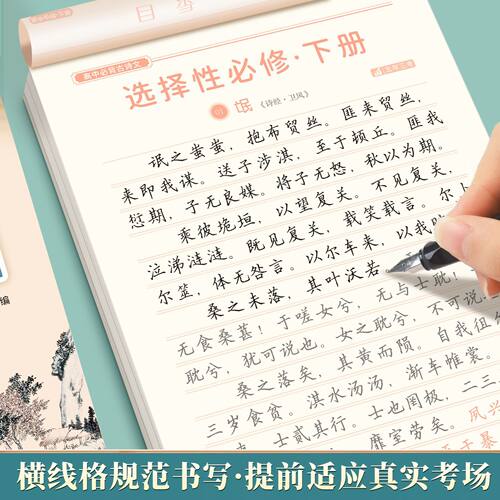 高中必背古诗文
选择性必修·下册
01 氓 《诗经·卫风》
氓之蚩蚩，抱布贸丝。匪来贸丝，
来即我谋。送子涉淇，至于顿丘。匪我
愆期，子无良媒。将子无怒，秋以为期。
乘彼垝垣，以望复关。不见复关，
泣涕涟涟。既见复关，载笑载言。尔卜
尔筮，体无咎言。以尔车来，以我
桑之未落，其叶沃若
无食桑葚！于嗟女兮，无与士耽！
耽兮，犹可说也。女之耽兮，不可说
桑之落矣，其黄而陨。自我徂
三岁食贫。淇水汤汤，渐车帷裳。
士贰其行。士也罔极，二三
靡室劳矣。夙兴
编
横线格规范书写·提前适应真实考场